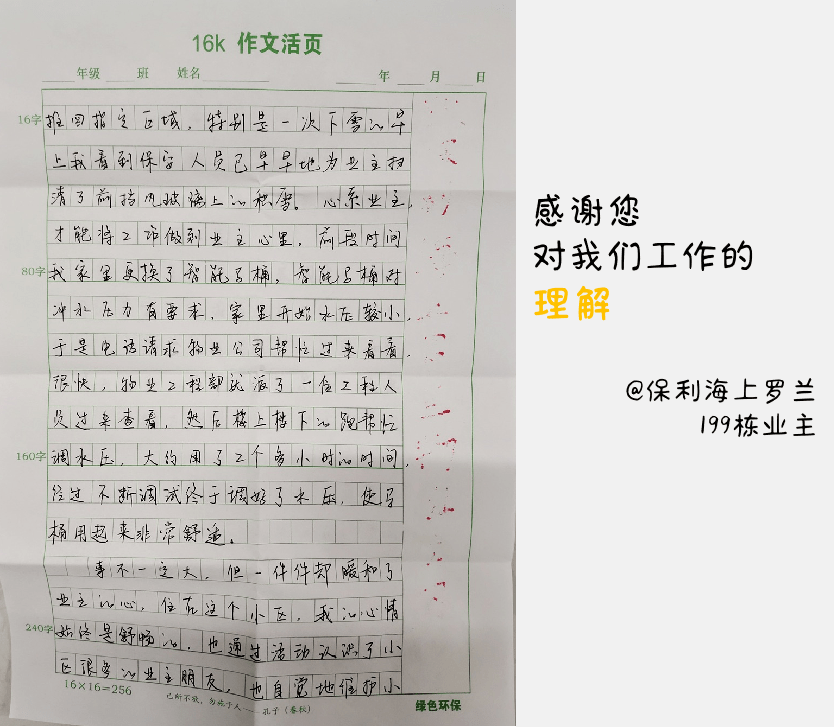 16k 作文活页
年级 班 姓名 年 月 日
16字
推回指定区域，特别是一次下雪的早
上我看到保安人员已早早地为业主扫
清了前挡风玻璃上的积雪。心系业主，
才能将工作做到业主心里，前段时间
80字
我家里更换了智能马桶，智能马桶对
冲水压力有要求，家里开始水压较小，
于是电话请求物业公司帮忙过来看看，
很快，物业工程部就派了一位工程人
员过来查看，然后楼上楼下的跑帮忙
160字
调水压，大约用了2个多小时的时间，
经过不断调试终于调好了水压，使马
桶用起来非常舒适。
事不一定大，但一件件却暖和了
业主的心，住在这个小区，我的心情
240字
始终是舒畅的，也通过活动认识了小
区很多的业主朋友，也自觉地维护小
16×16=256
己所不欲，勿施于人——孔子（春秋）
绿色环保
感谢您
对我们工作的
理解
@保利海上罗兰
199栋业主